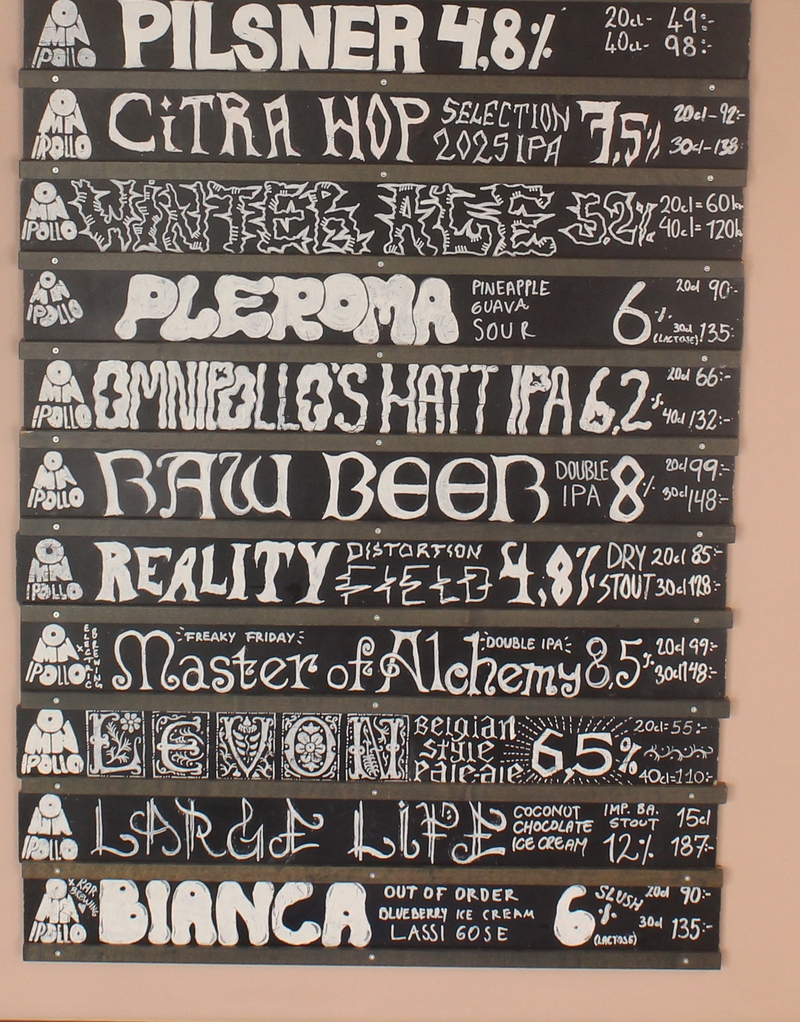 OMNIPOLLO PILSNER 4,8% 20cl- 49:-
40cl- 98:-
OMNIPOLLO CiTRA HOP SELECTION 2025 IPA 7,5% 20cl-92:-
30cl-138:-
OMNIPOLLO WINTER ALE 5,2% 20cl=60kr
40cl=120kr
OMNIPOLLO PLEROMA PINEAPPLE GUAVA SOUR 6% (LACTOSE) 20cl 90:-
30cl 135:-
OMNIPOLLO OMNIPOLLO'S HATT IPA 6,2% 20cl 66:-
40cl 132:-
OMNIPOLLO RAW BEER DOUBLE IPA 8% 20cl 99:-
30cl 148:-
OMNIPOLLO REALITY DISTORTION FIELD 4,8% DRY STOUT 20cl 85:-
30cl 128:-
OMNIPOLLO x ELECTRIC BREWING FREAKY FRIDAY Master of Alchemy DOUBLE IPA 8,5% 20cl 99:-
30cl 148:-
OMNIPOLLO LEVON Belgian style Pale-ale 6,5% 20cl=55:-
40cl=110:-
OMNIPOLLO LARGE LiFE COCONUT CHOCOLATE ICE CREAM IMP. BA. STOUT 12% 15cl
187:-
OMNIPOLLO x RAR BREWING BIANCA OUT OF ORDER BLUEBERRY ICE CREAM LASSI GOSE 6% (LACTOSE) SLUSH 20cl 90:-
30cl 135:-